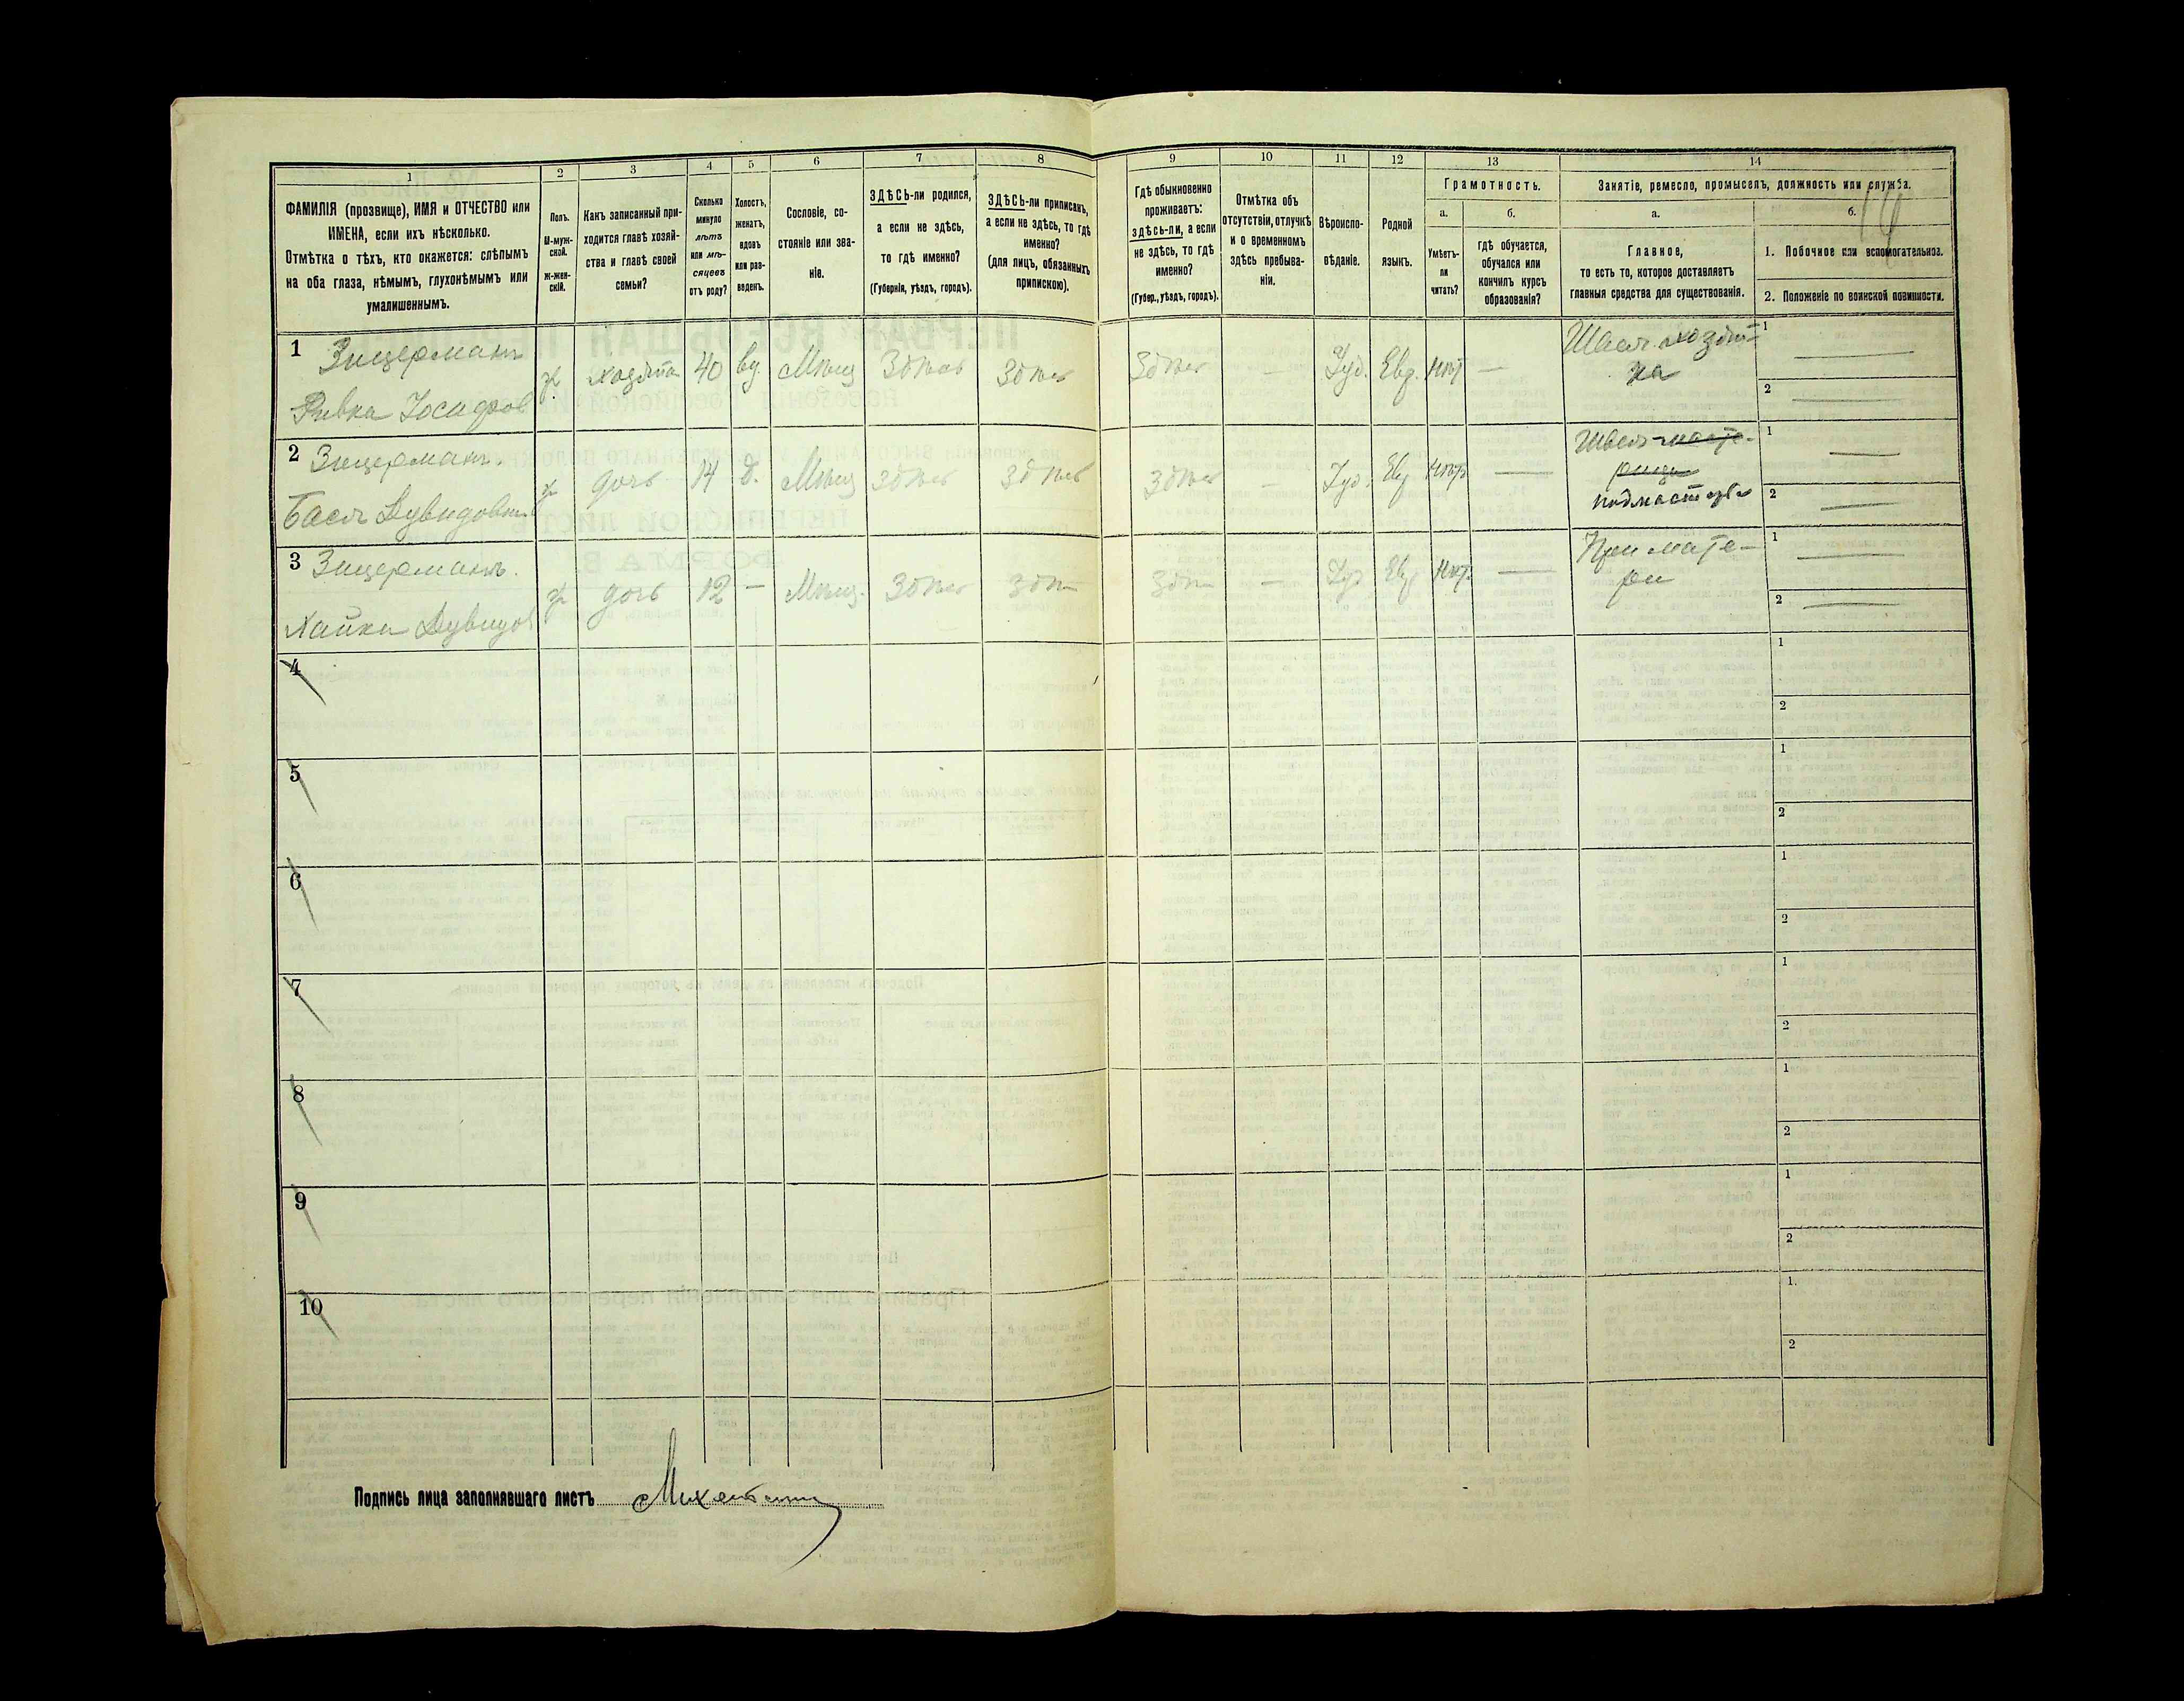 1 2 3 4 5 6 7 8 9 10 11 12 13 14
ФАМИЛІЯ (прозвище), ИМЯ и ОТЧЕСТВО или
ИМЕНА, если ихъ нѣсколько.
Отмѣтка о тѣхъ, кто окажется: слѣпымъ
на оба глаза, нѣмымъ, глухонѣмымъ или
умалишеннымъ.
Полъ.
М-муж-
ской.
Ж-жен-
скій.
Какъ записанный при-
ходится главѣ хозяй-
ства и главѣ своей
семьи?
Сколько
минуло
лѣтъ
или мѣ-
сяцевъ
отъ роду?
Холостъ,
женатъ,
вдовъ
или раз-
веденъ.
Сословіе, со-
стояніе или зва-
ніе.
ЗДѢСЬ-ли родился,
а если не здѣсь,
то гдѣ именно?
(Губернія, уѣздъ, городъ).
ЗДѢСЬ-ли приписанъ,
а если не здѣсь, то гдѣ
именно?
(для лицъ, обязанныхъ
припискою).
Гдѣ обыкновенно
проживаетъ:
здѣсь-ли, а если
не здѣсь, то гдѣ
именно?
(Губер., уѣздъ, городъ).
Отмѣтка объ
отсутствіи, отлучкѣ
и о временномъ
здѣсь пребыва-
ніи.
Вѣроиспо-
вѣданіе.
Родной
языкъ.
Грамотность.
а. б.
Умѣетъ-
ли
читать?
гдѣ обучается,
обучался или
кончилъ курсъ
образованія?
Занятіе, ремесло, промыселъ, должность или служба.
а. б.
Главное,
то есть то, которое доставляетъ
главныя средства для существованія.
1. Побочное или вспомогательное.
2. Положеніе по воинской повинности.
1 Зицерманъ
Ривка Іосифов
ж хозяйка 40 вд. Мѣщ Здѣсь Здѣсь Здѣсь — Іуд. Евр. нѣт —
Швея хозяй-
ка
1 —
2 —
2 Зицерманъ.
Бася Дувидовна
ж дочь 14 д. Мѣщ Здѣсь Здѣсь Здѣсь — Іуд. Евр нѣт —
Швея масте-
рица
подмастерье
1 —
2 —
3 Зицерманъ.
Хайка Дувидов
ж дочь 12 — Мѣщ. Здѣсь Здѣ Здѣ — Іуд Евр нѣт. —
При мате-
ри
1 —
2 —
4 1
2
5 1
2
6 1
2
7 1
2
8 1
2
9 1
2
10 1.
2
Подпись лица заполнявшаго листъ